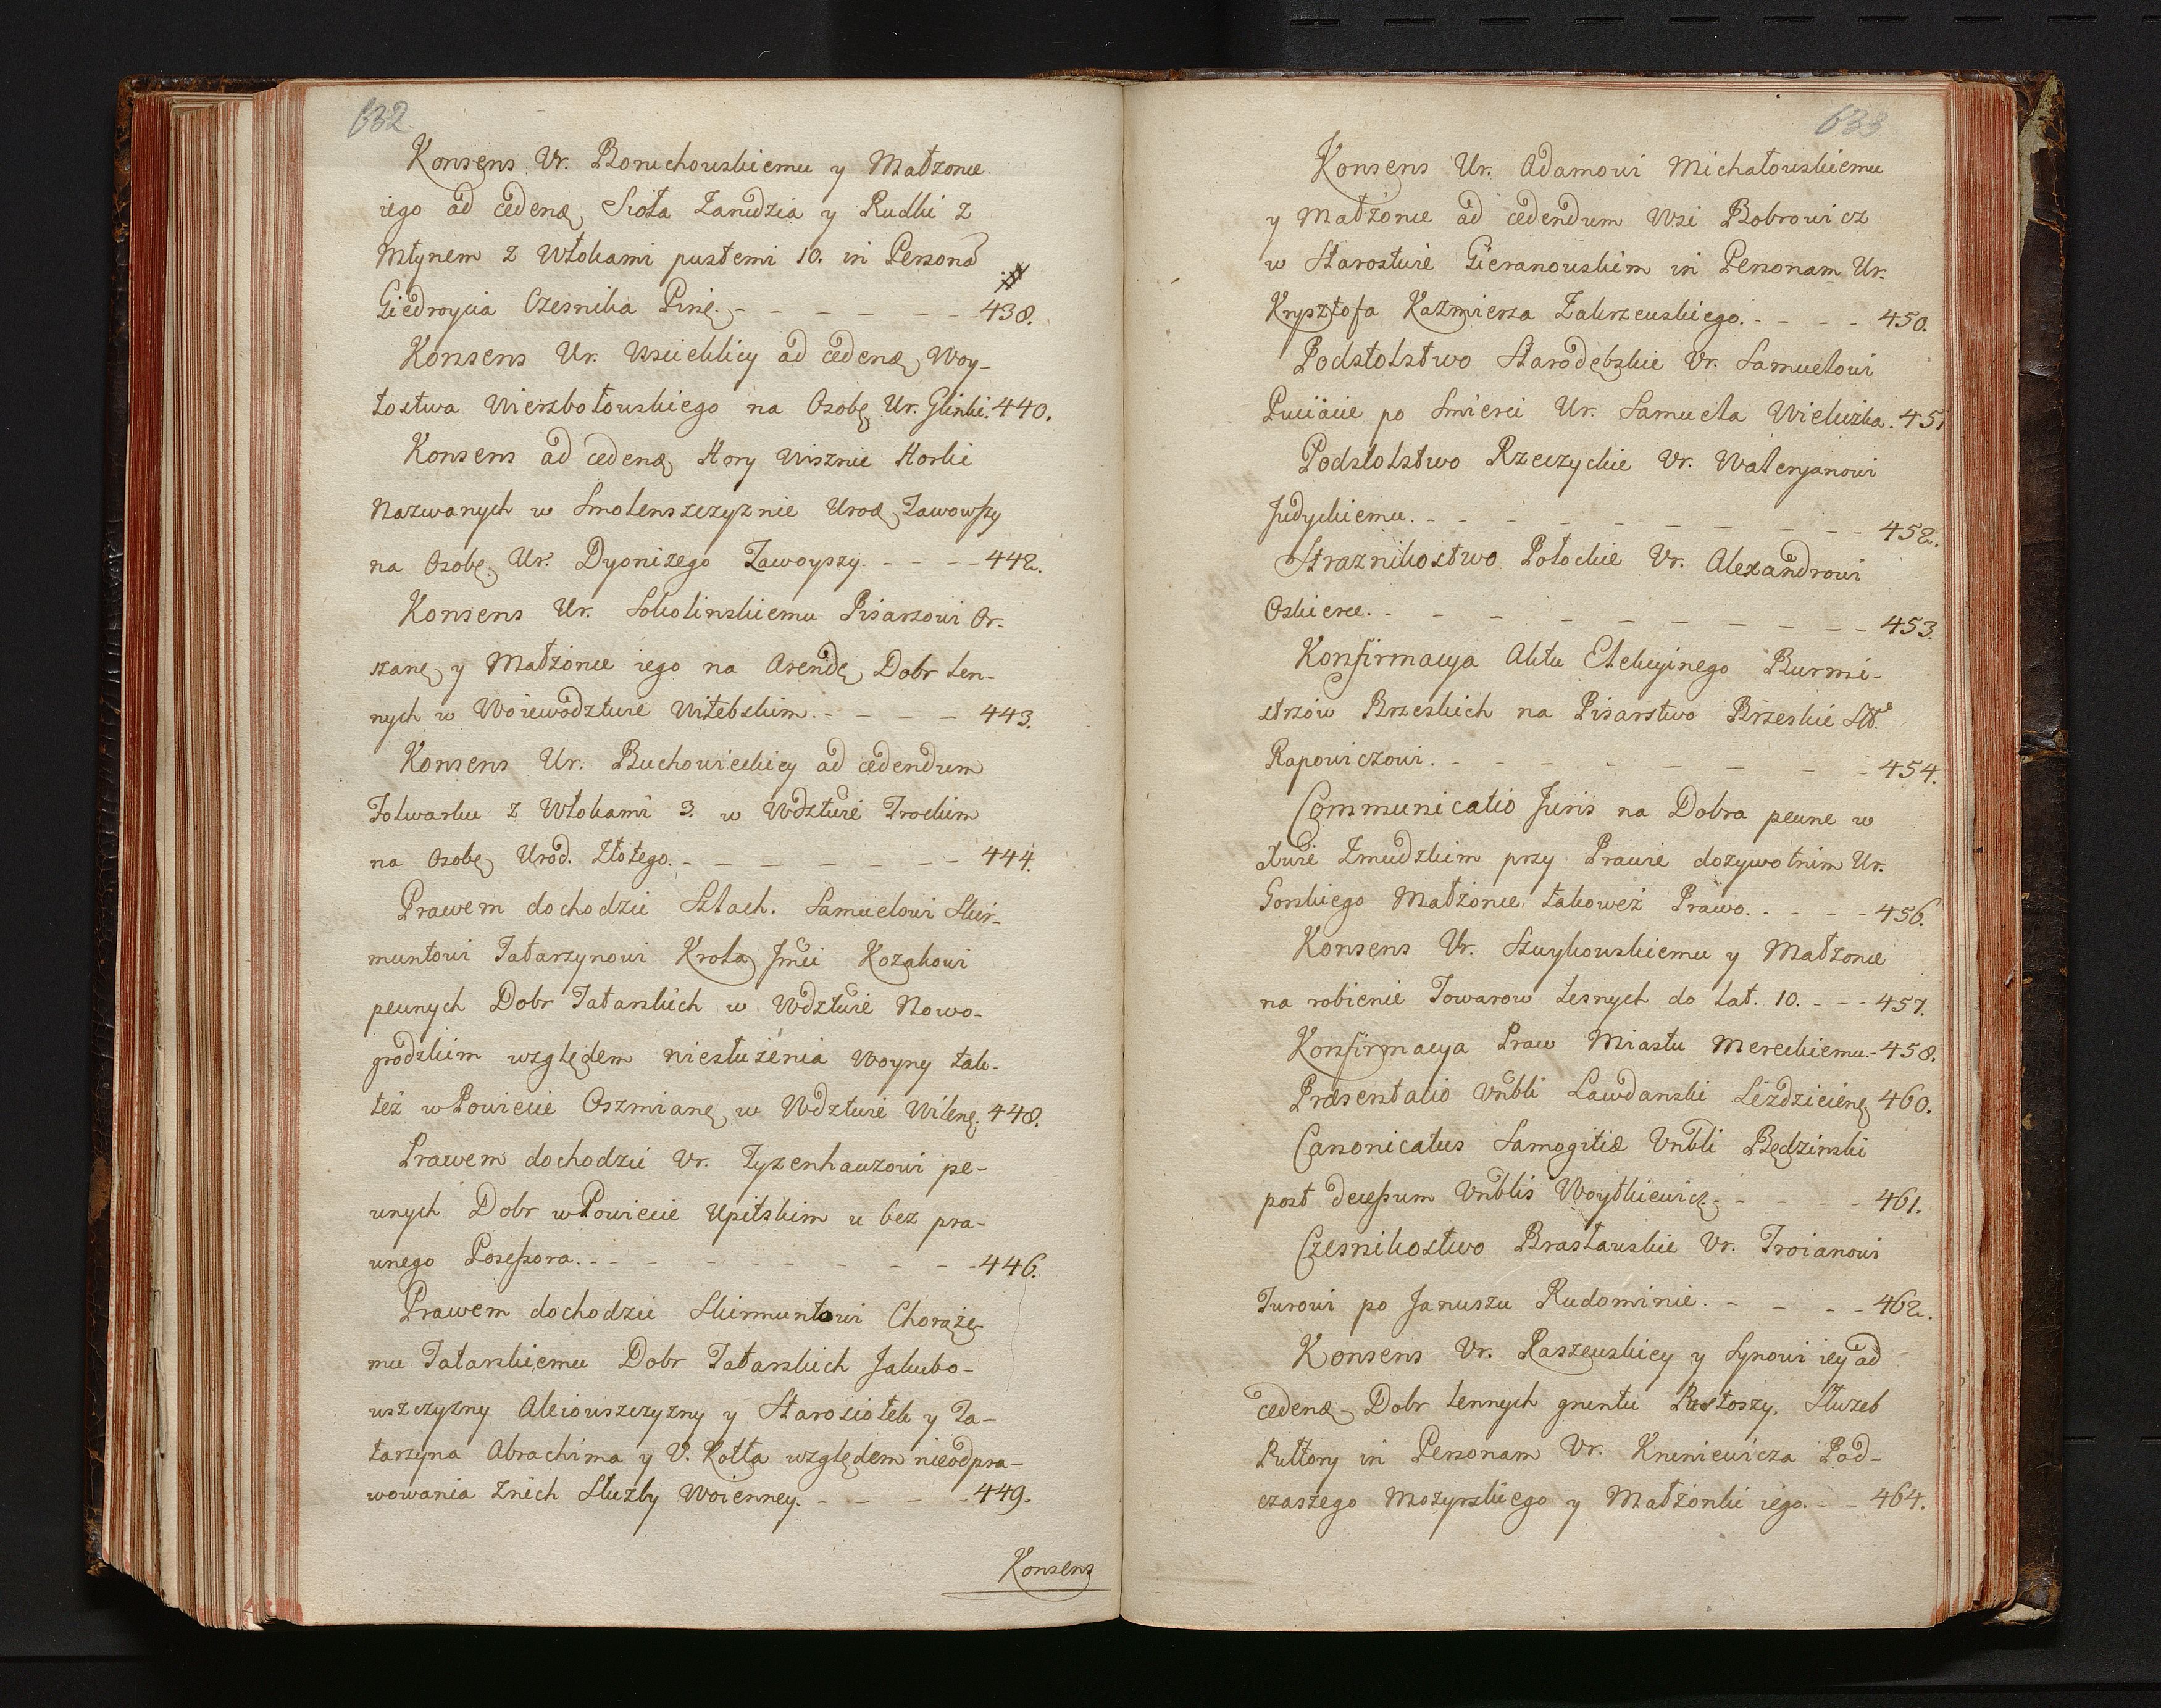 632
Konsens Ur. Boruchowskiemu y Małżonce
iego ad cedenę Sioła Zarudzia y Rudki z
Młynem z Włokami pustemi 10. in Persona
Giedroycia Czesnika Pinę. - - - - - - 438.
Konsens Ur. ad cedenę Woy-
tostwa Wierzbołowskiego na Osobę Ur. Glinki. 440.
Konsens ad cedenę Hory Wisznie Horki
Nazwanych w Smolenszczyznie Urodę Zawowszy
na Osobę Ur. Dyonizego Zawoyszy. - - - - 442.
Konsens Ur. Sokolinskiemu Pisarzowi Or-
szanę y Małżonce iego na Arendę Dobr Len-
nych w Woiewodztwie Witebskim. - - - - 443.
Konsens Ur. Buchowieckiey ad cedendum
Folwarku z Włokami 3. w Wdztwie Trockim
na Osobę Urod. Złotego. - - - - - - - 444.
Prawem dochodzić Szlach. Samuelowi Skir-
muntowi Tatarzynowi Krola Jmći Kozakowi
pewnych Dobr Tatarskich w Wdztwie Nowo-
grodzkim względem niesłużenia Woyny tak-
też w Powiecie Oszmianę w Wdztwie Wilenę. 448.
Prawem dochodzić Ur. Tyzenhauzowi pe-
wnych Dobr w Powiecie Upitskim u bez pra-
wnego Posessora. - - - - - - - - 446.
Prawem dochodzić Skirmuntowi Chorąże-
mu Tatarskiemu Dobr Tatarskich Jakubo-
wszczyzny Aleiowszczyzny y Starosiołek y Ta-
tarzyna Abrachima y U. Kotła względem nieodpra-
wowania z nich Służby Woienney. - - - - 449.
Konsens
633
Konsens Ur. Adamowi Michałowskiemu
y Małżonce ad cedendum Wsi Bobrowicz
w Starostwie Gieranowskim in Personam Ur.
Krysztofa Kazmierza Zakrzewskiego. - - - - 450.
Podstolstwo Starodębskie Ur. Samuelowi
Puciacie po Smierci Ur. Samuela Wieluzka. 451
Podstolstwo Rzeczyckie Ur. Waleryanowi
Judyckiemu. - - - - - - - - - 452.
Straznikostwo Połockie Ur. Alexandrowi
Oskierce. - - - - - - - - - 453.
Konfirmacya Aktu Elekcyinego Burmi-
strzow Brzeskich na Pisarstwo Brzeskie Sł.
Rapowiczowi. - - - - - - - - 454.
Communicatio Juris na Dobra pewne w
Xtwie Zmudzkim przy Prawie dozywotnim Ur.
Gorskiego Małżonce takoweż Prawo. - - - - 456.
Konsens Ur. Szuykowskiemu y Małżonce
na robienie Towarow lesnych do Lat. 10. - - - 457.
Konfirmacya Praw Miastu Mereckiemu. - 458.
Præsentatio Vnbli Lawdanski Leżdzicienę 460.
Canonicatus Samogitiæ Vnbli Będzinski
post decessum Vnblis Woytkiewicz. - - - - 461.
Czesnikostwo Brasławskie Ur. Troianowi
Turowi po Januszu Rudominie. - - - - 462.
Konsens Ur. Raszewskiey y Synowi iey ad
cedenę Dobr lennych gruntu Rostoszy. Służeb
Pułtory in Personam Ur. Kruniewicza Pod-
czaszego Mozyrskiego y Małżonki iego. - - 464.